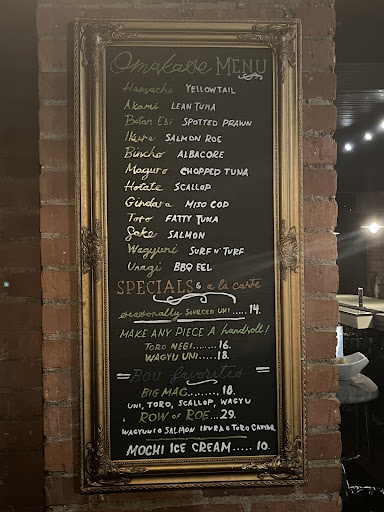 Omakase MENU
Hamachi YELLOWTAIL
Akami LEAN TUNA
Botan Ebi SPOTTED PRAWN
Ikura SALMON ROE
Bincho ALBACORE
Maguro CHOPPED TUNA
Hotate SCALLOP
Gindara MISO COD
Toro FATTY TUNA
Sake SALMON
Wagyuni SURF N' TURF
Unagi BBQ EEL
SPECIALS & a la carte
seasonally SOURCED UNI.....14.
MAKE ANY PIECE A handroll!
TORO NEGI........16.
WAGYU UNI.....18.
BOU favorites
BIG MAC.........18.
UNI, TORO, SCALLOP, WAGYU
ROW OF ROE...29.
WAGYUNI & SALMON IKURA & TORO CAVIAR
MOCHI ICE CREAM..... 10.